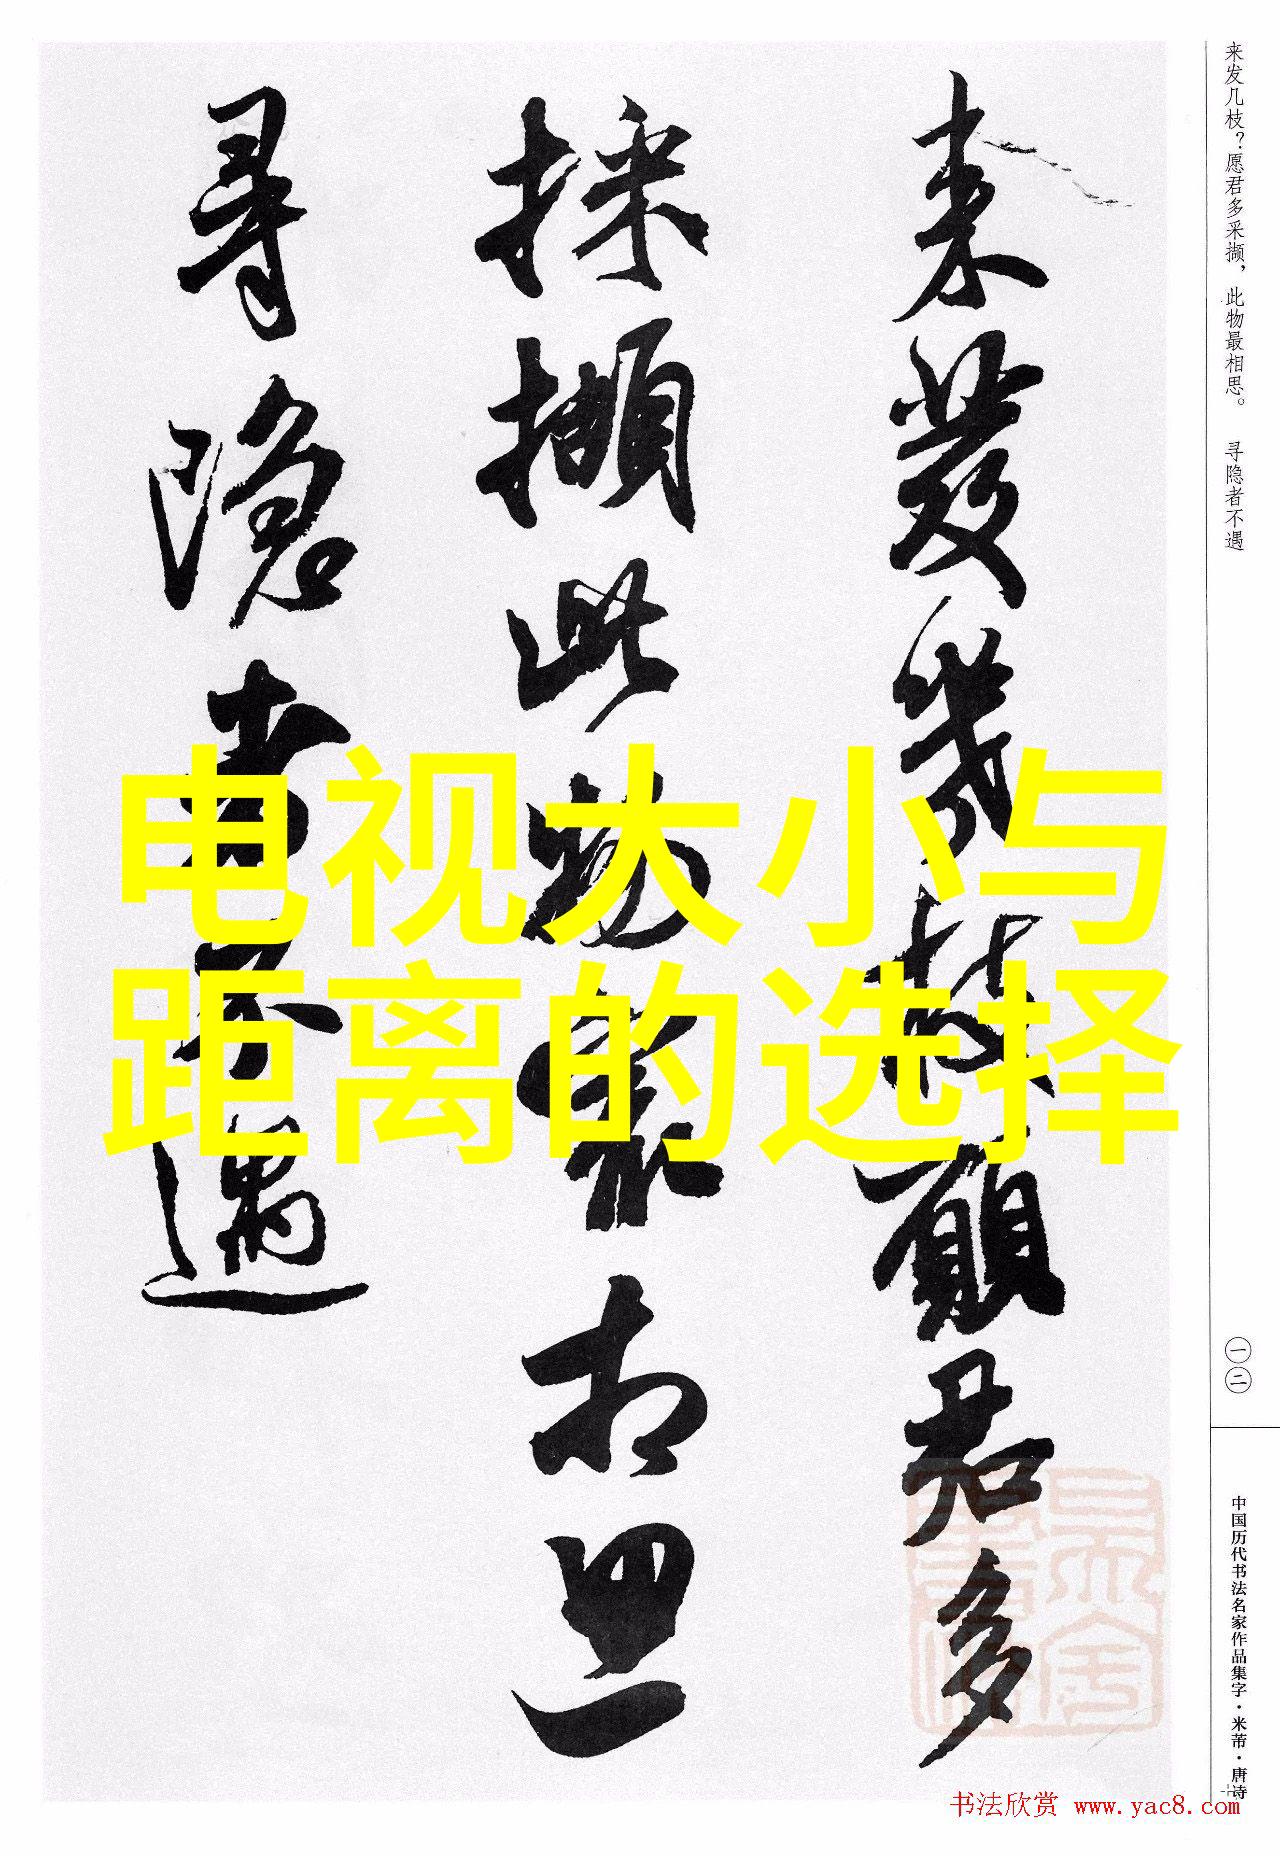 来發幾枝願君多
採擷此物最相思
尋隱者不遇
电视大小与
距离的选择
来发几枝？愿君多采撷，此物最相思。 寻隐者不遇
一二
中国历代书法名家作品集字·米芾·唐诗
书法欣赏 www.yac8.com